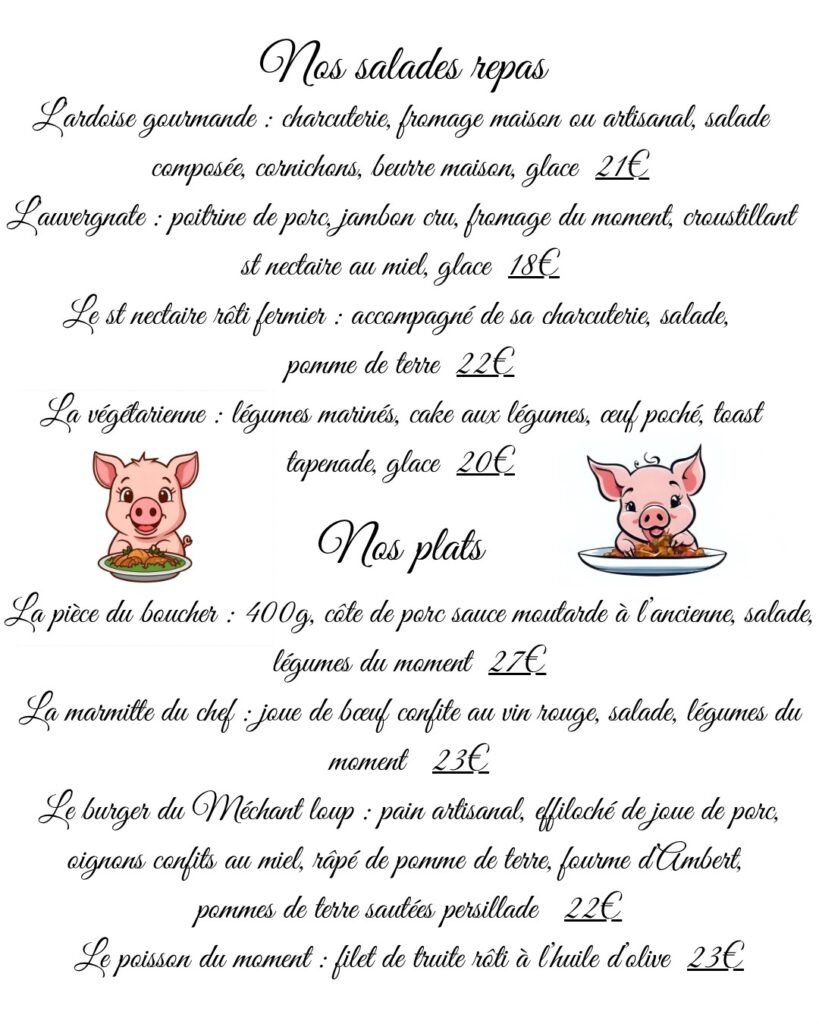 Nos salades repas
L'ardoise gourmande : charcuterie, fromage maison ou artisanal, salade
composée, cornichons, beurre maison, glace 21€
L'auvergnate : poitrine de porc, jambon cru, fromage du moment, croustillant
st nectaire au miel, glace 18€
Le st nectaire rôti fermier : accompagné de sa charcuterie, salade,
pomme de terre 22€
La végétarienne : légumes marinés, cake aux légumes, œuf poché, toast
tapenade, glace 20€
Nos plats
La pièce du boucher : 400g, côte de porc sauce moutarde à l'ancienne, salade,
légumes du moment 27€
La marmitte du chef : joue de bœuf confite au vin rouge, salade, légumes du
moment 23€
Le burger du Méchant loup : pain artisanal, effiloché de joue de porc,
oignons confits au miel, râpé de pomme de terre, fourme d'Ambert,
pommes de terre sautées persillade 22€
Le poisson du moment : filet de truite rôti à l'huile d'olive 23€